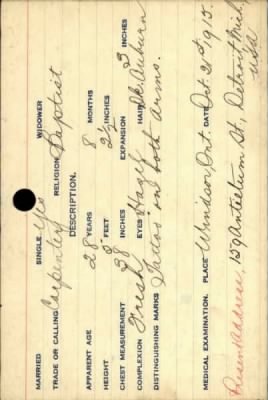 MARRIED SINGLE Yes WIDOWER
TRADE OR CALLING Carpenter RELIGION Baptist
DESCRIPTION.
APPARENT AGE 28 YEARS 8 MONTHS
HEIGHT 5 FEET 2½ INCHES
CHEST MEASUREMENT 38 INCHES EXPANSION 3 INCHES
COMPLEXION Fresh EYES Hazel HAIR Dk. Auburn
DISTINGUISHING MARKS Tattoo on both arms.
MEDICAL EXAMINATION. PLACE Windsor, Ont. DATE Oct. 21st, 1915.
Present Address, 159 Antietam St., Detroit Mich.